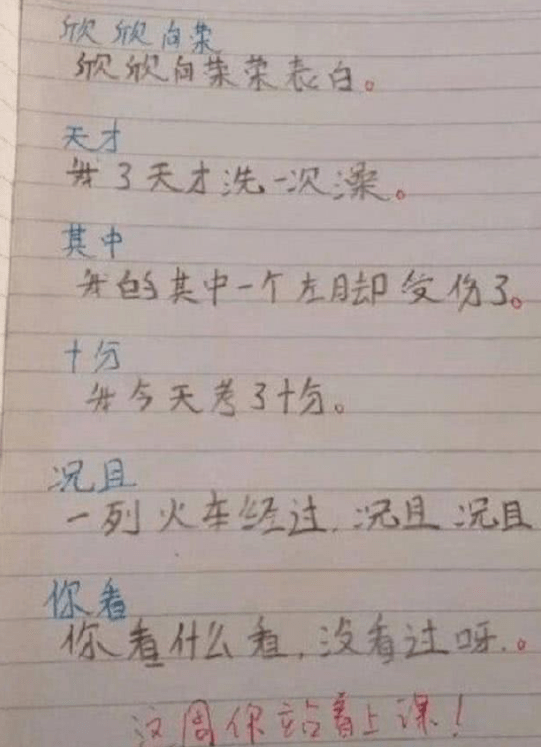 欣欣向荣
欣欣向荣荣表白。
天才
我3天才洗一次澡。
其中
我的其中一个左脚受伤了。
十分
我今天考了十分。
况且
一列火车经过,况且况且
你看
你看什么看,没看过呀.。
这周你站着上课!